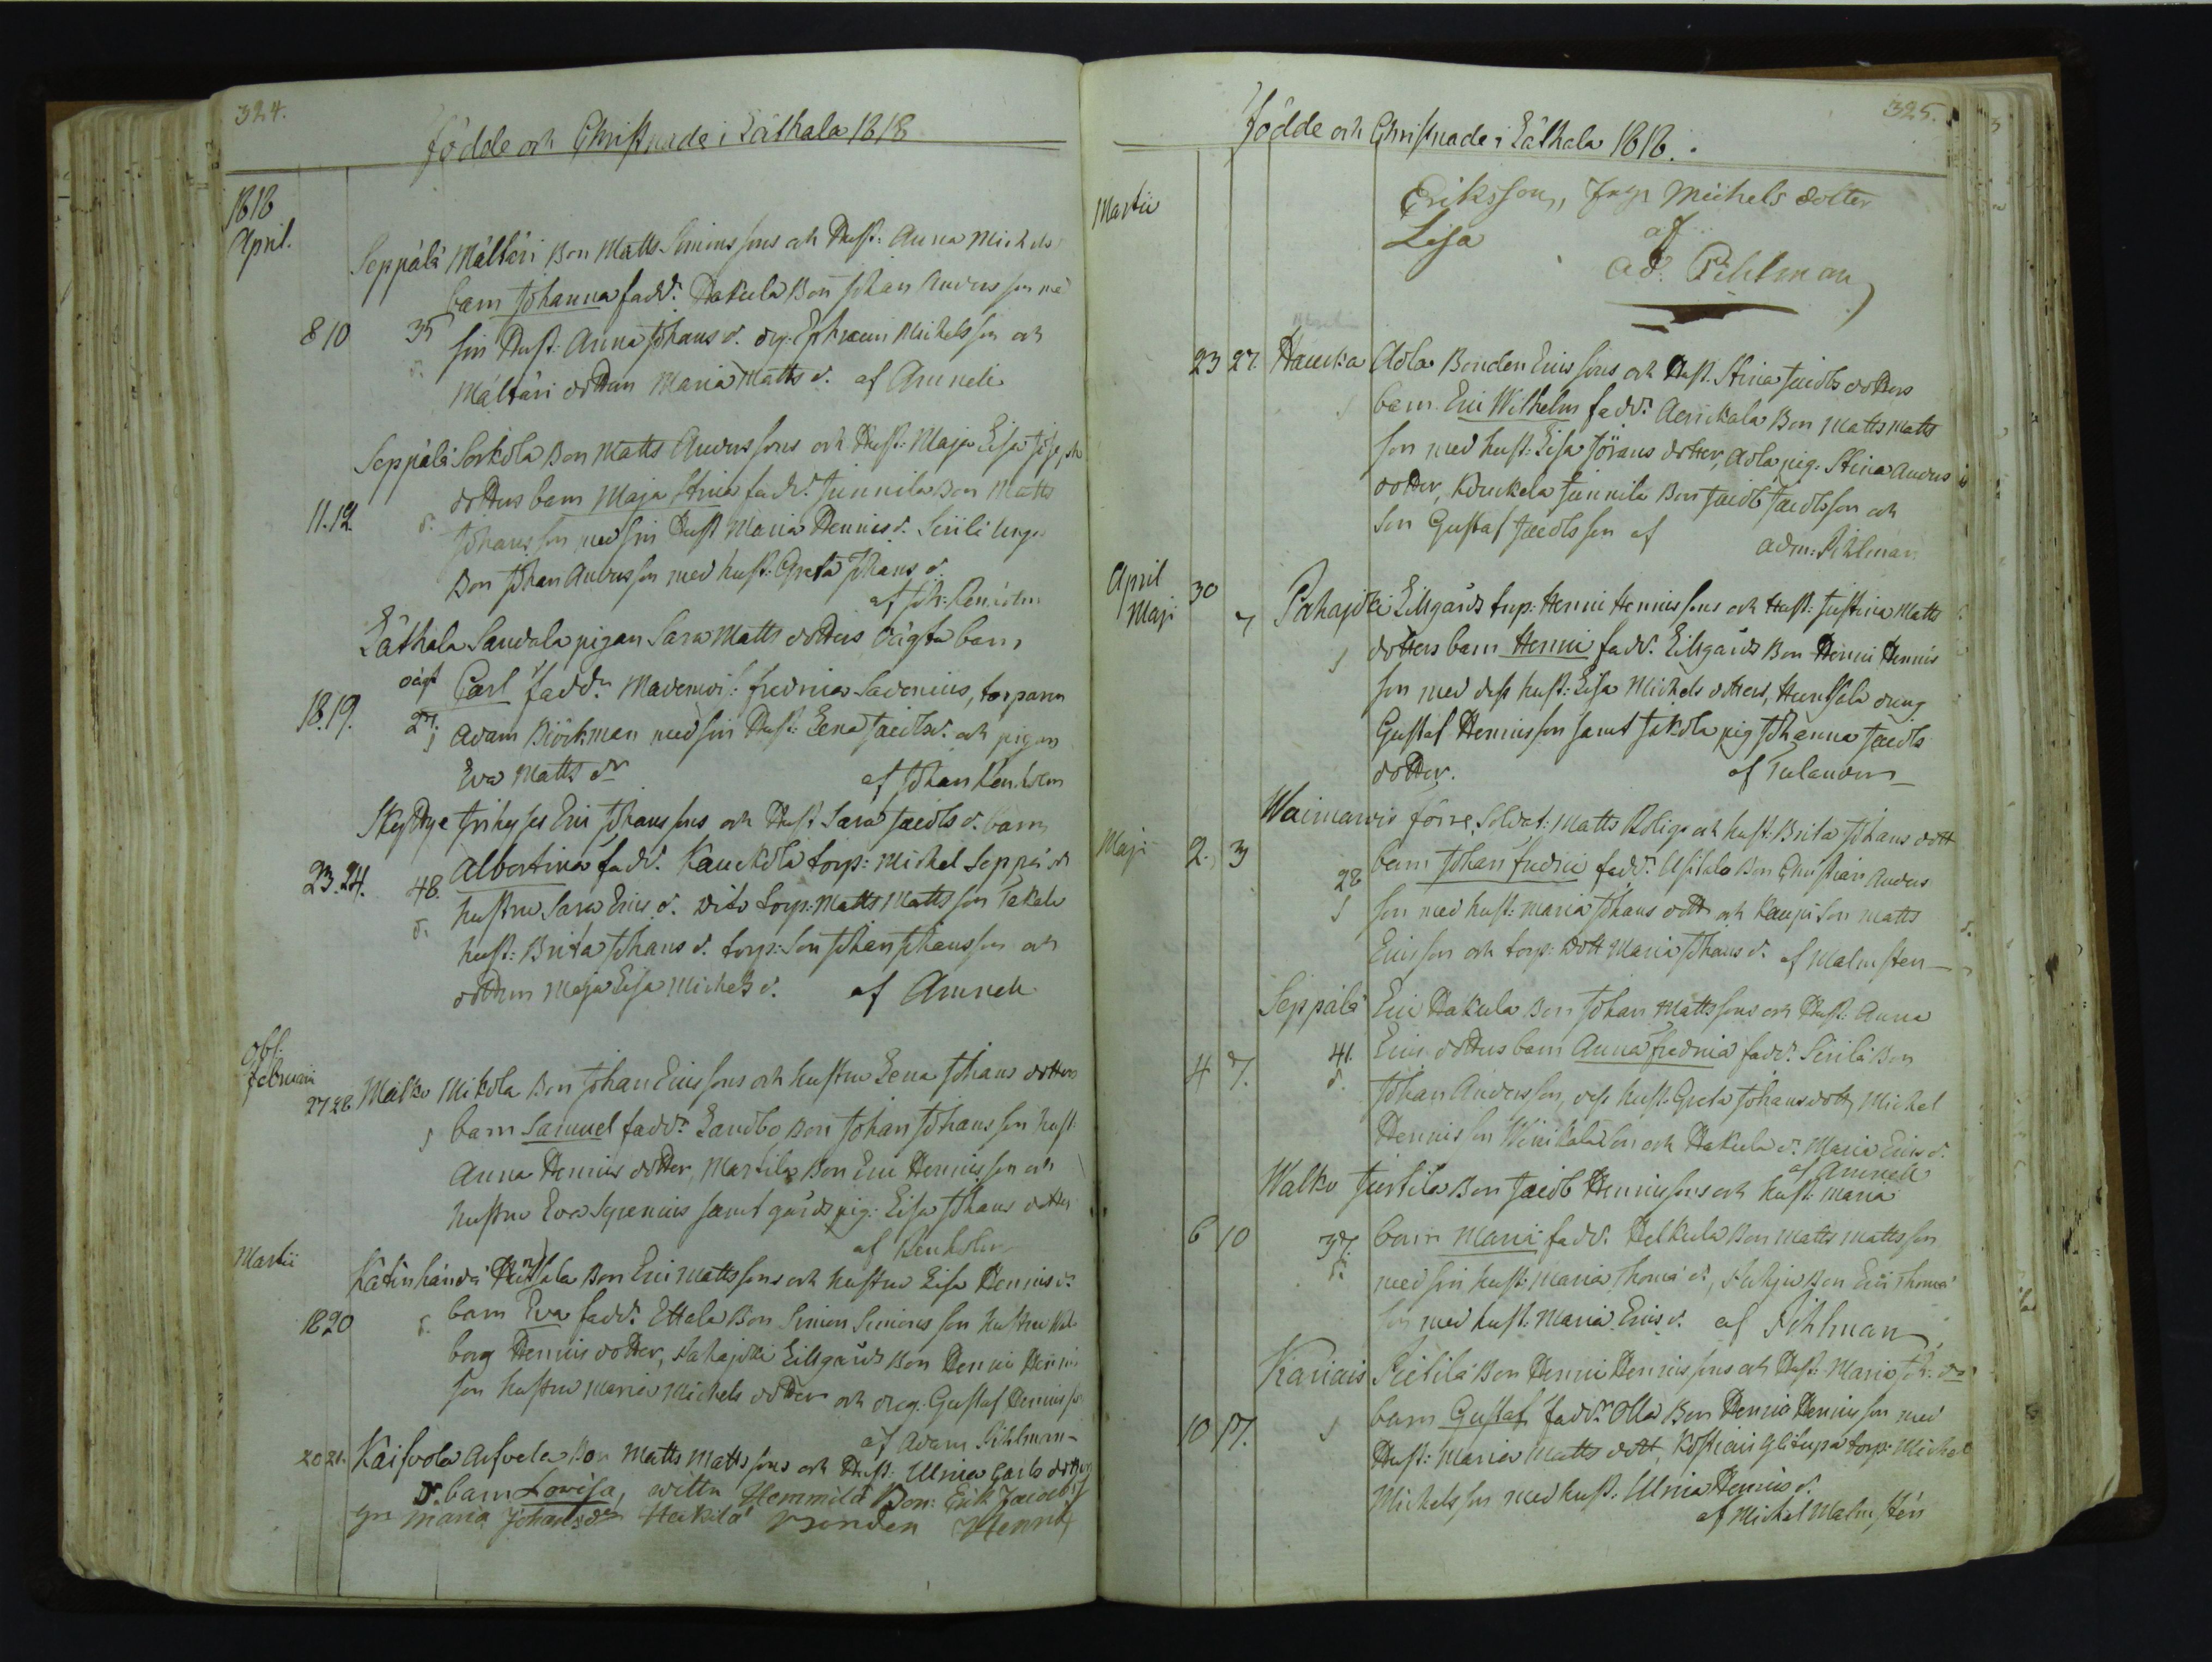 324.
Födde och Christnade i Läthala 1818
1818
April.
Seppälä Mälkäri Bon Matts Simons sons och Hust: Anna Michels
barn Johanna fadd: Hakula Bon Johan Anders son med
8 10 35 sin Hust: Anna Johans d. drg: Ephraim Michelsson och
d. Mälkäri dottren Maria Matts d. af Amnell
Seppälä Sorkola Bon Matts Anders sons och Hust: Maja Lisa Joseph
dotters barn Maja Stina fadd: Junnila Bon Matts
11. 12 d. Johansson med sin Hust Maria Henrics d.
Bon Johan Andersson med hust: Greta Johans d.
af Joh: Renholm
Läthala Sandala pigan Sara Matts dotters oägta barn
oägt Carl fadd:r Fredrica Savenius, torparen
18. 19. 27. s Adam Björkman med sin Hust: Lena Jacobs d. och pigan
Eva Matts dr af Johan Renholm
Skyttye Eric Johans sons och Hust Sara Jacobs d. barn
Albertina fadd: Kauckola torp: Michel Seppä och
23. 24. 48. hustru Sara Erics d. dito torp: Matts Matts son Takala
d. hust: Brita Johans d. torp: son Johan Johansson och
dottren Maja Lisa Michels d. af Amnell
Obs.
Februari
27 28 Malko Mikola Bon Johan Erics sons och hustru Lena Johans dotters
s barn Samuel fadd:r Landbo Bon Johan Johans son hust:
Anna Henrics dotter, Martila Bon Eric Henrics son och
hustru Eva samt gårds pig: Lisa Johans dotter
af Renholm
Martii
Bon Eric Matts sons och hustru Lisa Henrics dr
18 20 d. barn Eva fadd: Ettala Bon Simon Simons son hustru Val
borg Henrics dotter, Pahajoki Lillgårds Bon Henric Henrics
son hustru Maria Michels dotter och drg: Gustaf Henrics s:
af Adam Pihlman
20 21. Kaifvola Arfvela Bon Matts Matts sons och Hust: Ulrica Carls dotters
D. barn Lovisa, wittn Hemmilä Bon: Erik Jacobs
gn Maria Johans dr Heikilä bonden Henrik
325.
Födde och Christnade i Läthala 1818.
Martii
Eriksson, Michels dotter
Lisa af
Ad. Pihlman
23 27. Haucka Aola Bonden Erics sons och Hust. Stina Jacobs dotters
s barn Eric Wilhelm fadd:r Bon Matts Matts
son med hust: Lisa Jörans dotter, Aola pig: Stina Anders
dotter, Junnila Bon Jacob Jacobsson och
son Gustaf Jacobsson af adm: Pihlman
April 30
Maji 7 Pahajoki Lillgårds Henric Henrics sons och Hust: Justina Matts
s dotters barn Henric fadd. Lillgårds Bon Henric Henrics
son med dess hust: Lisa Michels dotters, dreng
Gustaf Henricsson samt Jakola pig Johanna Jacobs
dotter. af Tulander
Waimarvis förre Soldat: Matts Rolig och hust: Brita Johans dott
Maji 2. 3 barn Johan Fredric fadd. Ufitalo Bon Christian Anders
28
s son med hust: Maria Johans dott och Kaupi son Matts
Ericsson och torp: dott Maria Johans d. af Malmsten
Seppälä Eric Hakula Bon Johan Matts sons och Hust: Anna
4 7. 41. Erics dotters barn Anna Fredrica fadd: Sirilä Bon
d. Johan Andersson, dess hust: Greta Johans dott, Michel
Henrics son son och Hakula dr Maria Erics d.
af Amnell
Walko Juntila Bon Jacob Henrics sons och hust: Maria
6 10 37. barn Maria fadd: Helkula Bon Matts Mattsson
d. med sin hust: Maria Thomæ d., Bon Eric Thomæ
son med hust: Maria Erics d. af Pihlman
Kariais Pietilä Bon Henric Henrics sons och Hust: Maria Joh: dr
10 17. s barn Gustaf fadd:r Olla Bon Henric Henrics son med
Hust: Maria Matts dott, torp: Michel
Michelsson med hust: Ulrica Henrics d.
af Michel Malmstén